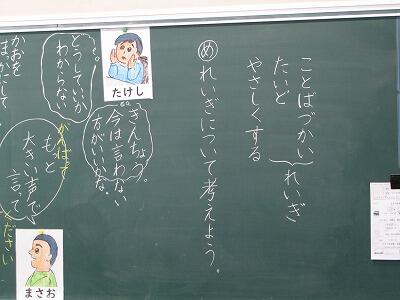 ことばづかい
たいど
やさしくする
れいぎ
めれいぎについて考えよう。
たけし
きんちょう。
今は言わない
方がいいかな。
と。
どうしていいか
わからない
かおを
まっかにして
がんばって
もっと
大きい声で
言って
ください
まさお